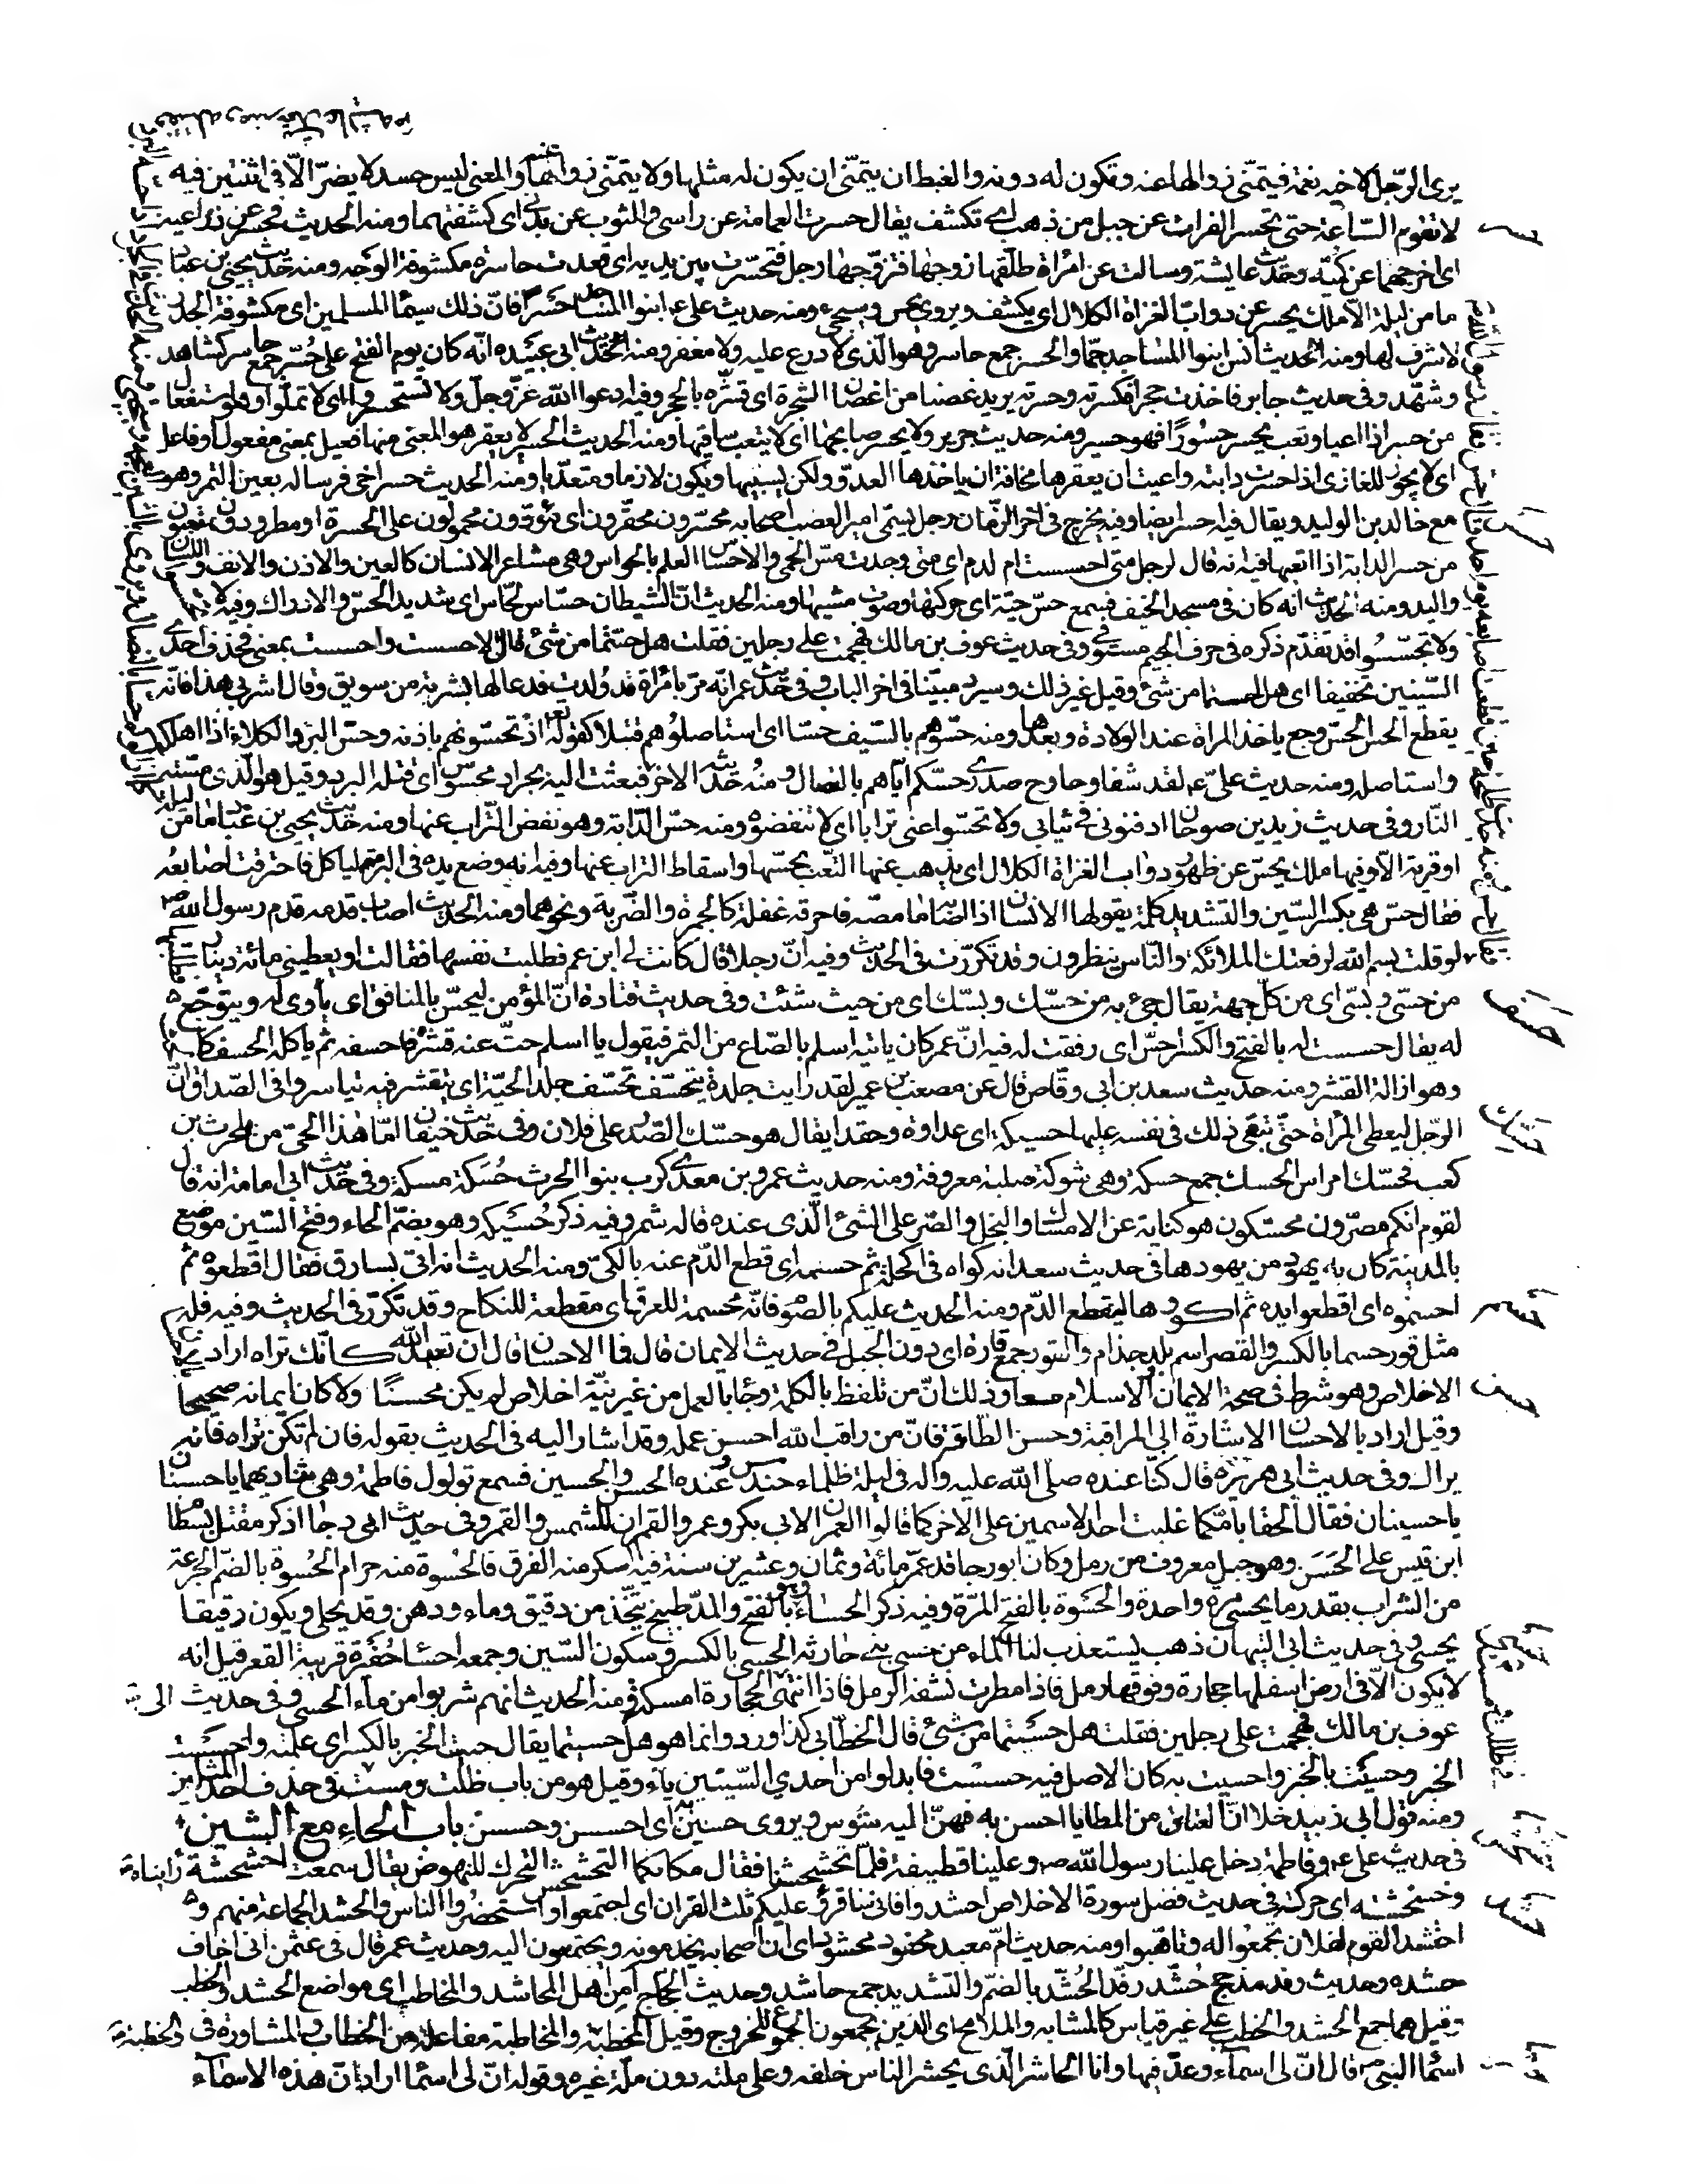 يرى الرّجل لاخيه نعمة فيتمنّى زوالها عنه وتكون له دونه والغبط ان يتمنّى ان يكون له مثلها ولا يتمنّى زوالها عنه والمعنى ليس حسد لا يضرّ الّا فى اثنتين فيه
لا تقوم السّاعة حتى يحسر الفرات عن جبل من ذهب اى تكشف يقال حسرت العمامة عن راسى والثوب عن بدنى اى كشفتهما ومنه الحديث فحسر عن ذراعيه
اى اخرجهما عن كميّه وحديث عايشة وسالت عن امراة طلّقها زوجها فتزوّجها رجل فتحسّرت بين يديه اى قعدت حاسرة مكشوفة الوجه ومنه حديث يحيى بن عباد
ما من ليلة الّا ملك يحسر عن دوابّ الغزاة الكلال اى يكشف ويروى يحس وسيجىء ومنه حديث على ع ابنوا المساجد حسّرا فانّ ذلك سيما المسلمين اى مكشوفة الجدر
لا شرف لها ومنه الحديث انس ابنوا المساجد جمّا والحسر جمع حاسر وهو الّذى لا درع عليه ولا مغفر ومنه الحديث ابى عبيده انّه كان يوم الفتح على حُسّر جمع حاسر كشاهد
وشهّد وفى حديث جابر فاخذت حجرا فكسرته وحسرته يريد غصنا من اغصان الشجرة اى قشّره بالحجر وفيه ادعوا الله عزّ وجلّ ولا تستحسروا اى لا تملّوا وهو استفعال
من حسر اذا اعيا وتعب يحسر حسُورًا فهو حسير ومنه حديث جرير ولا يحسر صابحها اى لا يتعب ساقيها ومنه الحديث الحسير لا يعقر هو المعنى منها فعيل بمعنى مفعول او فاعل
اى لا يجوز للغازى اذا حسرت دابته واعيت ان يعقرها مخافة ان ياخذها العدوّ ولكن يسيبها ويكون لازما ومتعدّيا ومنه الحديث حسر اخى فرسا له بعين التمر وهو
مع خالد بن الوليد ويقال فيه احسر ايضا وفيه يخرج فى اخر الزّمان رجل يسمّى امير العصب اصحابه محسّرون محقّرون اى مؤذون محمولون على الحسرة او مطرودون متعبون
من حسر الدابة اذا اتعبها فيه انه قال لرجل متى احسست ام لدم اى متى وجدت مسّ الحمى والاحساس العلم بالحواس وهى مشاعر الانسان كالعين والاذن والانف واللسان
واليد ومنه الحديث انه كان فى مسجد الخيف فسمع حسّ حيّة اى حركتها وصوت مشيها ومنه الحديث انّ الشيطان حسّاس لحّاس اى شديد الحسّ والادراك وفيه لا تحسّسوا
ولا تجسّسُوا قد تقدّم ذكره فى حرف الجيم مستوفى وفى حديث عوف بن مالك فهجمت على رجلين فقلت هل حستما من شئ قال لا حست واحسست بمعنى فحذف احدى
السّينين تخفيفا اى هل احسستما من شئ وقيل غير ذلك وسيرد مبيّنا فى اخر الباب وفى حديث عمر انّه مرّ بامراة قد ولدت فدعا لها بشربة من سويق وقال اشربى هذا فانّه
يقطع الحس الحسّ وجع ياخذ المراة عند الولادة وبعدها ومنه حسّوهم بالسّيف حسّا اى استاصلوهم قتلا كقوله تع اذ تحسّونهم باذنه وحسّ البرد الكلاء اذا اهلكه
واستاصله ومنه حديث علىّ ع لقد شفا وحاوح صدرى حسّكم ايّاهم بالنصال ومنه حديثه الاخر فبعثت اليه بجراد محسوس اى قتله البرد وقيل هو الّذى مستّه
النّار وفى حديث زيد بن صوحان ادفنونى فى ثيابى ولا تحسّوا عنى ترابا اى لا تنفضوه ومنه حسّ الدّابة وهو نفض التّراب عنها ومنه حديث يحيى بن عبّاد ما من ليلة
او قرية الّا وفيها ملك يحسّ عن ظهور دواب الغزاة الكلال اى يذهب عنها التعب بحسّها واسقاط التراب عنها وفيه انه وضع يده فى البرمة لياكل فاحترقت اصابعُه
فقال حسّ هى بكسر السّين والتشديد كلمة يقولها الانسان اذا اصابه ما مضّه فاحرقه غفلة كالجمرة والضّربة ونحوهما ومنه الحديث اصاب قدمه قدم رسول الله ص
لو قلت بسم الله لرفعتك الملائكة والنّاس ينظرون وقد تكرّرت فى الحديث وفيه انّ رجلا قال كانت لى ابن عم فطلبت نفسها فقالت او يعطينى مائة دينار
من حسّى وبسّى اى من كلّ جهة يقال جىء به من حسّك وبسّك اى من حيث شئت وفى حديث قتادة انّ المؤمن ليحسّ بالمنافق اى يأوى له ويتوجّع
له يقال حسست له بالفتح والكسر احسّ اى رفقت له فيه انّ عمر كان ياتيه اسلم بالصّاع من التمر فيقول يا اسلم حتّ عنه قشره فاحسفه ثم ياكله الحسف كالحتّ
وهو ازالة القشر ومنه حديث سعد بن ابى وقاص قال عن مصعب بن عمير لقد رايت جلده يتحسّف تحسّف جلد الحيّة اى يتقشر فيه تياسروا فى الصّداق انّ
الرّجل ليعطى المرأة حتّى تبقى ذلك فى نفسه عليها حسيكة اى عداوة وحقدا يقال هو حسّك الصّدر على فلان وفى حديث خيفان امّا هذا الحىّ من بلحرث بن
كعب فحسّك امراس الحسك جمع حسكة وهى شوكة صلبة معروفة ومنه حديث عمرو بن معدى كرب بنوا الحرث حُسَكة مسكة وفى حديث ابى امامة انه قال
لقوم انكم مصرّون محسّكون هو كناية عن الامساك والبخل والصّر على الشئ الّذى عنده قاله شمر وفيه ذكر حُسَيكة وهو بضمّ الحاء وفتح السّين موضع
بالمدينة كان به يهود من يهودها فى حديث سعد انه كواه فى اكحله ثم حسمه اى قطع الدّم عنه بالكىّ ومنه الحديث انه اتى بسارق فقال اقطعوه ثم
احسموه اى اقطعوا يده ثم اكووها لينقطع الدّم ومنه الحديث عليكم بالصّوم فانّه محسمة للعرق اى مقطعة للنكاح وقد تكرّر فى الحديث وفيه فله
مثل قور حسما بالكسر والقصر اسم بلد جذام والقور جمع قارة اى دون الجبل فى حديث الايمان قال فما الاحسان قال ان تعبد الله كانّك تراه اراد
الاخلاص وهو شرط فى صحة الايمان والاسلام معا وذلك انّ من تلفظ بالكلمة وجاء بالعمل من غير نيّة اخلاص لم يكن محسنًا ولا كان ايمانه صحيحا
وقيل اراد بالاحسان الاشارة الى المراقبة وحسن الطّاعة فانّ من راقب الله احسن عمله وقد اشار اليه فى الحديث بقوله فان لم تكن تراه فانه
يراك وفى حديث ابى هريرة قال كنّا عنده صلّى الله عليه واله فى ليلة ظلماء حندس وعنده الحسن والحسين فسمع تولول فاطمة وهى تناديهما يا حسنان
يا حسينان فقال الحقا بامّكما غلبت احد الاسمين على الاخر كما قالوا العمران لابى بكر وعمر والقمران للشمس والقمر وفى حديث ابى رجاء اذكر مقتل بسطام
ابن قيس على الحَسَن وهو جبل معروف من رمل وكان ابو رجا قد عمّر مائة وثمان وعشرين سنة فيه اسكر منه الفرق فالحُسوة منه حرام الحُسوة بالضّم الجرعة
من الشراب بقدر ما يحسى مرة واحدة والحَسوة بالفتح المرّة وفيه ذكر الحساء وهو بالفتح والمدّ طبيخ يتّخذ من دقيق وماء ودهن وقد يحلى ويكون رقيقا
يحسى وفى حديث ابى التيهان ذهب يستعذب لنا الماء من حسى بنى حارثه الحسى بالكسر وسكون السّين وجمعه احساء حُفَيرة قريبة القعر قيل انه
لا يكون الّا فى ارض اسفلها حجارة وفوقها رمل فاذا مطرت نشفه الرمل فاذا انتهى الى الحجارة امسكته ومنه الحديث انهم شربوا من ماء الحسى وفى حديث
عوف بن مالك فهجمت على رجلين فقلت هل حستما من شئ قال الخطّابى كذا ورد وانما هو هل حسيتما يقال حسيت الخبر بالكسر اى علمته واحسيت
الخبر وحسِيت بالخبر واحسيت به كان الاصل فيه حسست فابدلوا من احدى السّينين ياء وقيل هو من باب ظلت ومست فى حذف احد المثلين
ومنه قول ابى زبيد خلا انّ العتاق من المطايا احسن به فهنّ اليه شُوس ويروى حسين به اى احسسن وحسسن باب الحاء مع الشين
فى حديث على ع وفاطمة دخل علينا رسول الله ص وعلينا قطيفة فلمّا رايناه تحشحشنا فقال مكانكما التحشحش التحرك للنهوض يقال سمعت له حشحشة
وخشخشه اى حركة فى حديث فضل سورة الاخلاص احشدوا فانى ساقرؤ عليكم ثلث القران اى اجتمعوا واستحضروا الناس والحشد الجماعة منهم و
احتشد القوم لفلان تجمعوا له وتاهّبوا ومنه حديث امّ معبد محفود محشود اى ان اصحابه يخدمونه ويجتمعون اليه وحديث عمر قال فى عثمن انى اخاف
حشده وحديث وفد مذحج حُشّد رفّد الحُشّد بالضمّ والتشديد جمع حاشد وحديث الحجاج امن اهل المحاشد والمخاطب اى مواضع الحشد والخطب
وقيل هما جمع الحشد والخطب على غير قياس كالمشابه والملامح اى الذين يجمعون الجموع للخروج وقيل الخطبة والمخاطبة مفاعلة من الخطاب والمشاورة فى
اسماء النبى ص قال انّ لى اسماء وعدّ فيها وانا الحاشر الّذى يحشر الناس خلفه وعلى ملته دون ملّة غيره وقوله انّ لى اسماء اراد انّ هذه الاسماء